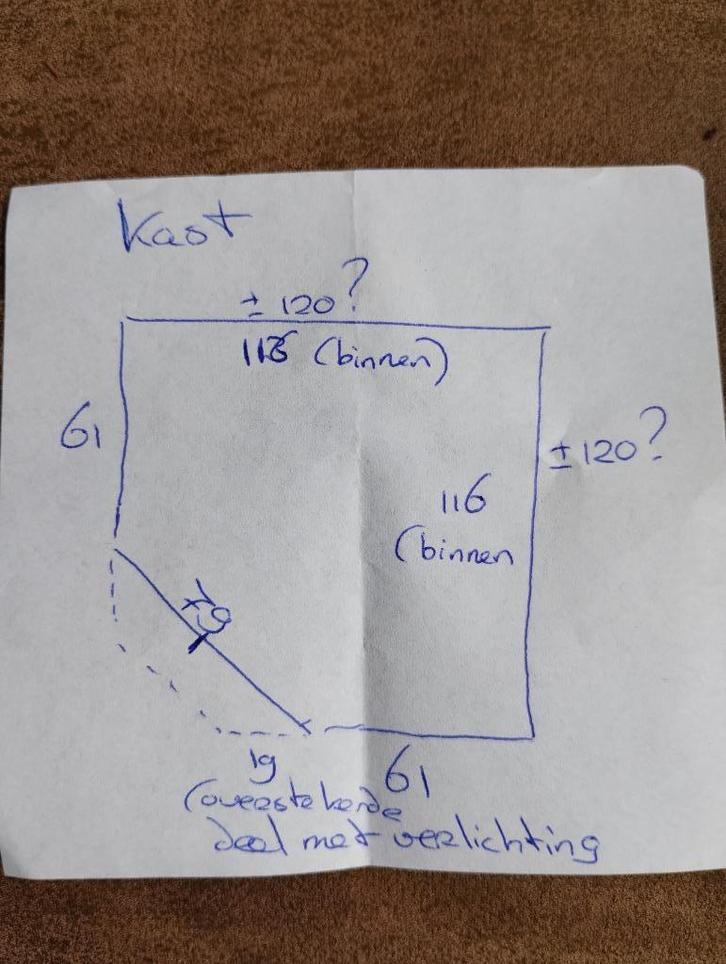 Kast
± 120?
116 (binnen)
61
± 120?
116
(binnen
79
19
61
(overstekende
deel met verlichting